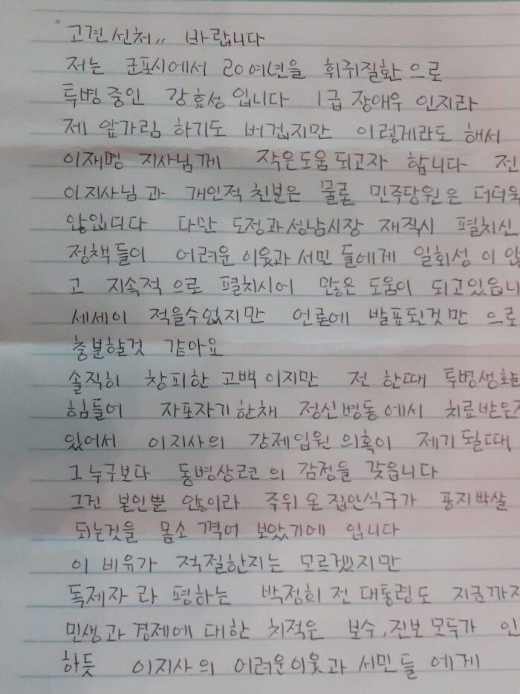 "고견선처,, 바랍니다
저는 군포시에서 20여년을 휘귀질환으로
투병중인 강효성입니다 1급 장애우 인지라
제 앞가림 하기도 버겁지만 이렇게라도 해서
이재명 지사님께 작은도움 되고자 합니다 전
이지사님과 개인적 친분은 물론 민주당원은 더더욱
않입니다 다만 도정과 성남시장 재직시 펼치신
정책들이 어려운 이웃과 서민들에게 일회성이 안
고 지속적으로 펼치시어 많은 도움이 되고있읍니
세세이 적을수없지만 언론에 발표된것만 으로
충분할것 같아요
솔직히 창피한 고백이지만 전 한때 투병생활
힘들어 자포자기한채 정신병동에서 치료받은
있어서 이지사의 강제입원 의혹이 제기될때
그누구보다 동병상련의 감정을 갖읍니다
그건 본인뿐 않이라 주위 온집안식구가 풍지박살
되는것을 몸소 격어 보았기에 입니다
이 비유가 적절한지는 모르겠지만
독제자라 평하는 박정희 전 대통령도 지금까지
민생과 경제에 대한 치적은 보수,진보 모두가 인
하듯 이지사의 어려운이웃과 서민들에게